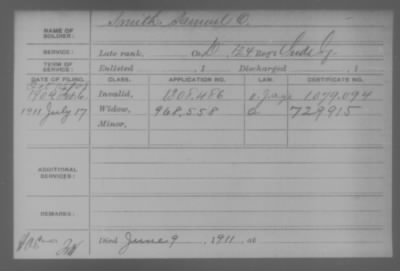 NAME OF SOLDIER: Smith, Samuel O.
SERVICE: Late rank, Co. D, 124 Reg't Ind. Inf.
TERM OF SERVICE: Enlisted , 1 Discharged , 1
DATE OF FILING. CLASS. APPLICATION NO. LAW. CERTIFICATE NO.
1904 Invalid, 1308.486 1079.094
1911 July 17 Widow, 968.558 729915
Minor,
ADDITIONAL SERVICES:
REMARKS:
Died June 9, 1911, at